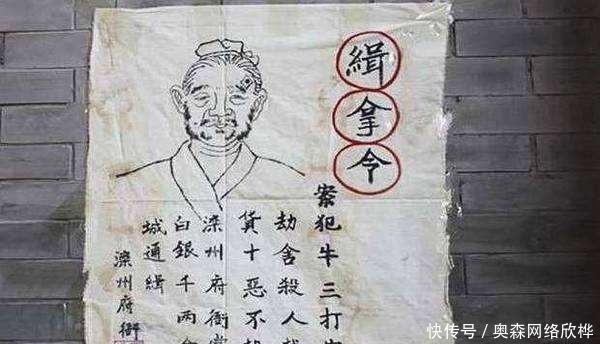 緝拿令
案犯牛三打
劫舍殺人
貨十惡不
滦州府衙
白銀千兩
城通緝
滦州府衙
快传号／奥森网络欣桦